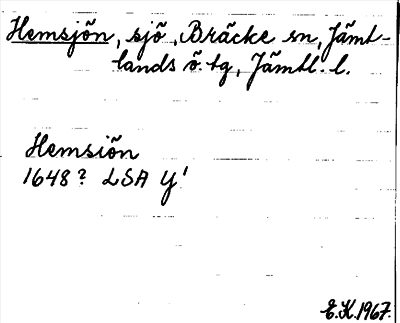 Hemsjön, sjö, Bräcke sn, Jämt-
lands ö. tg, Jämtl. l.
Hemsiön
1648? LSA Y'
E.H.1967.